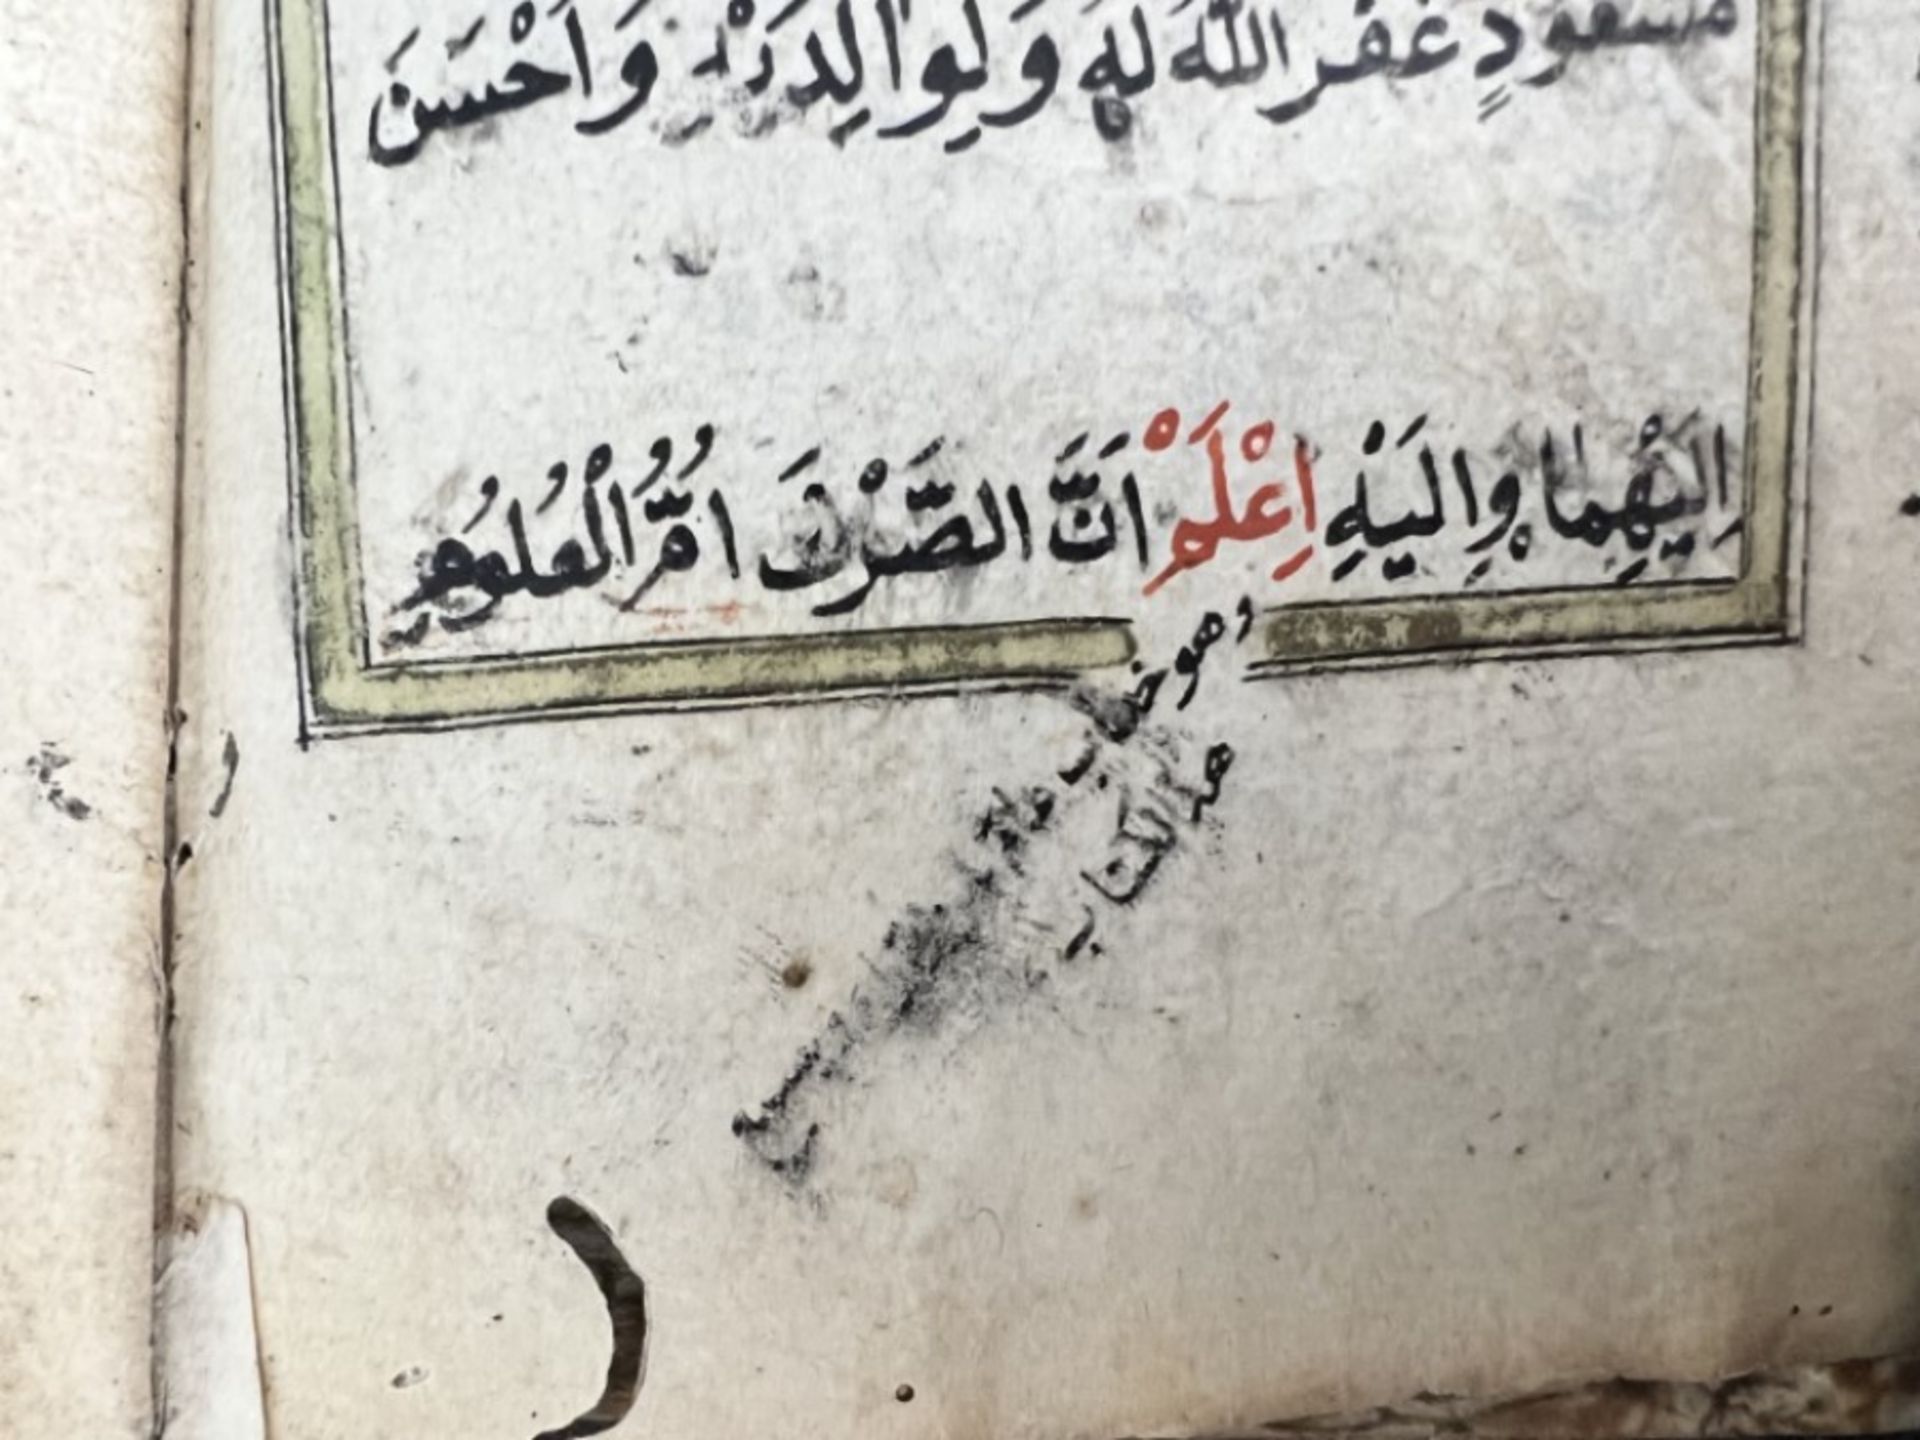 مسعودٍ غفر اللّٰه لهٗ وَلِوالِدَيْهِ وَاَحْسَنَ
اِلَيْهِمَا وَاِلَيْهِ اِعْلَمْ اَنَّ الصَّرْفَ اُمُّ الْعُلُومِ
وهو خطاب
هذا الكتاب